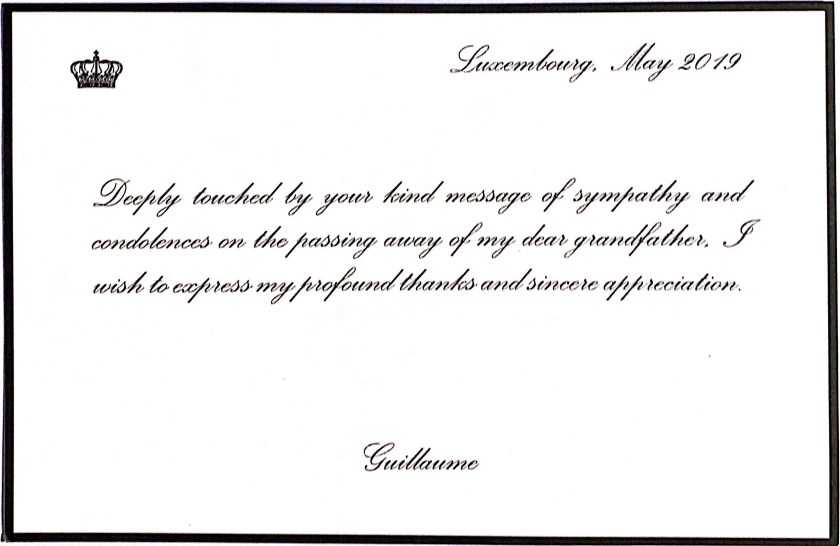 Luxembourg, May 2019
Deeply touched by your kind message of sympathy and
condolences on the passing away of my dear grandfather, I
wish to express my profound thanks and sincere appreciation.
Guillaume